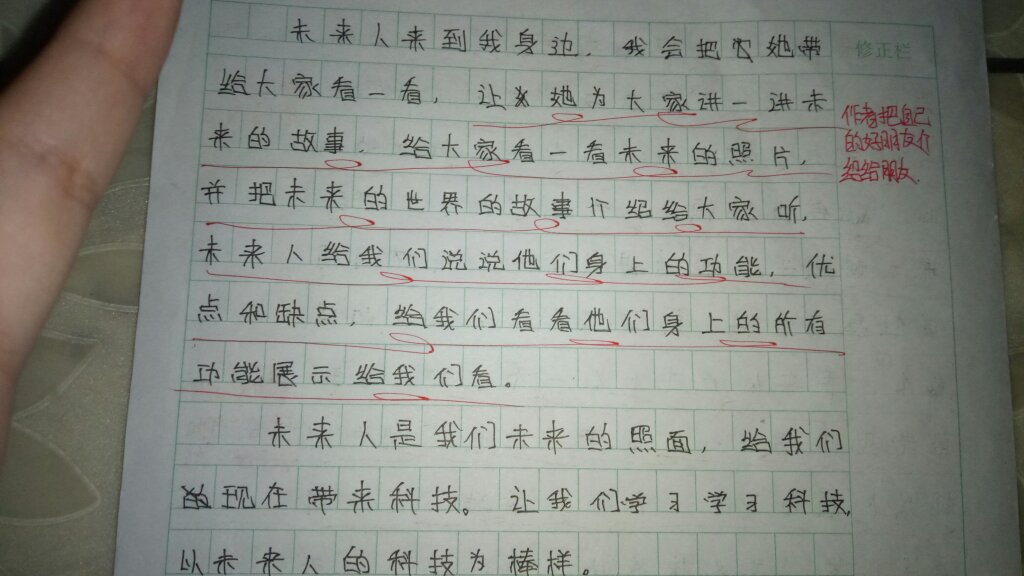 未来人来到我身边，我会把她带
修正栏
给大家看一看，让她为大家讲一讲未
来的故事，给大家看一看未来的照片，
作者把自己
的好朋友介
绍给朋友
并把未来的世界的故事介绍给大家听，
未来人给我们说说他们身上的功能，优
点和缺点，给我们看看他们身上的所有
功能展示给我们看。
未来人是我们未来的照面，给我们
现在带来科技。让我们学习学习科技，
以未来人的科技为榜样。